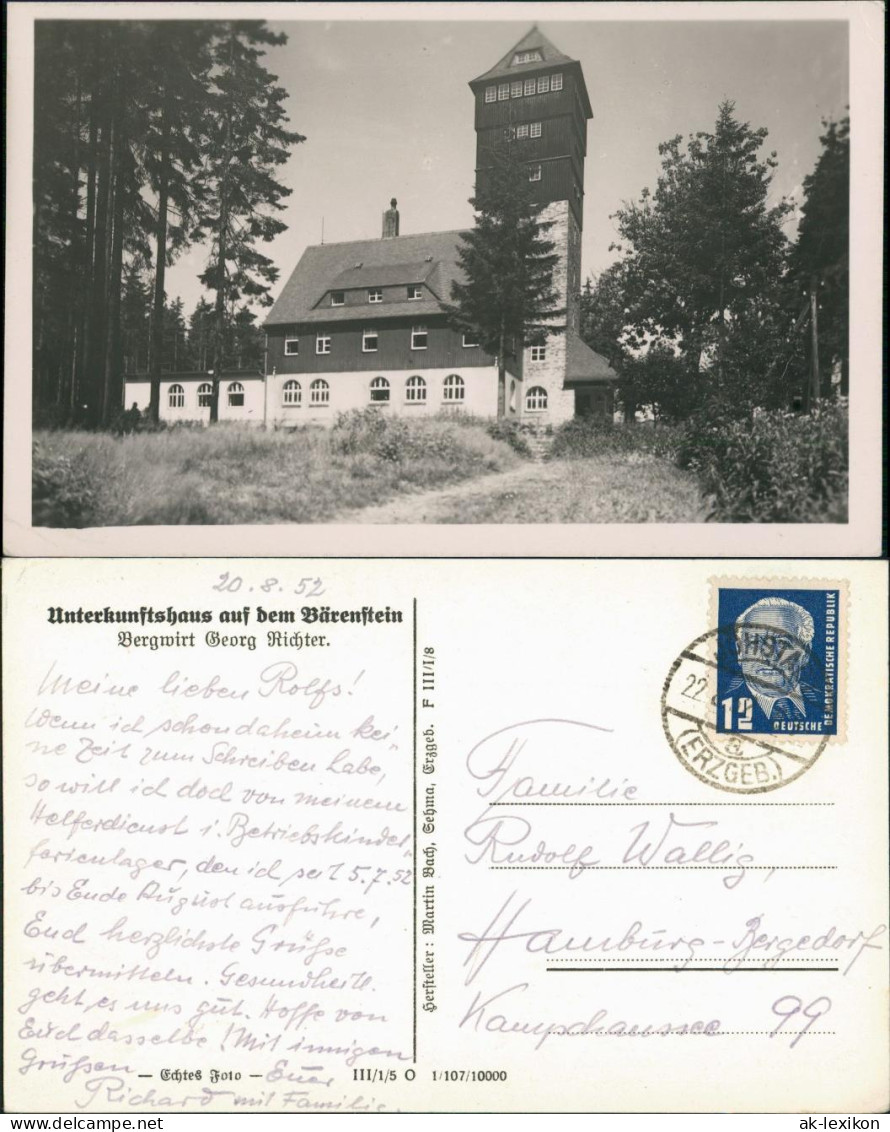 20.8.52
Unterkunftshaus auf dem Bärenstein
Bergwirt Georg Richter.
Meine lieben Rolfs!
Wenn ich schon daheim kei-
ne Zeit zum Schreiben habe,
so will ich doch von meinem
Helferdienst i. Betriebskinder-
ferienlager, den ich seit 5.7.52
bis Ende August ausführe,
Euch herzlichste Grüße
übermitteln. Gesundheitl.
geht es uns gut. Hoffe von
Euch dasselbe! Mit innigen
Grüßen
Euer
Richard mit Familie.
— Echtes Foto —
III/1/5 O 1/107/10000
Hersteller: Martin Bach, Sehma, Erzgeb. F III/1/8
DEUTSCHE DEMOKRATISCHE REPUBLIK
12
22.
a
(ERZGEB.)
Familie
Rudolf Wallig,
Hamburg-Bergedorf
Kampchaussee 99
ak-lexikon.com